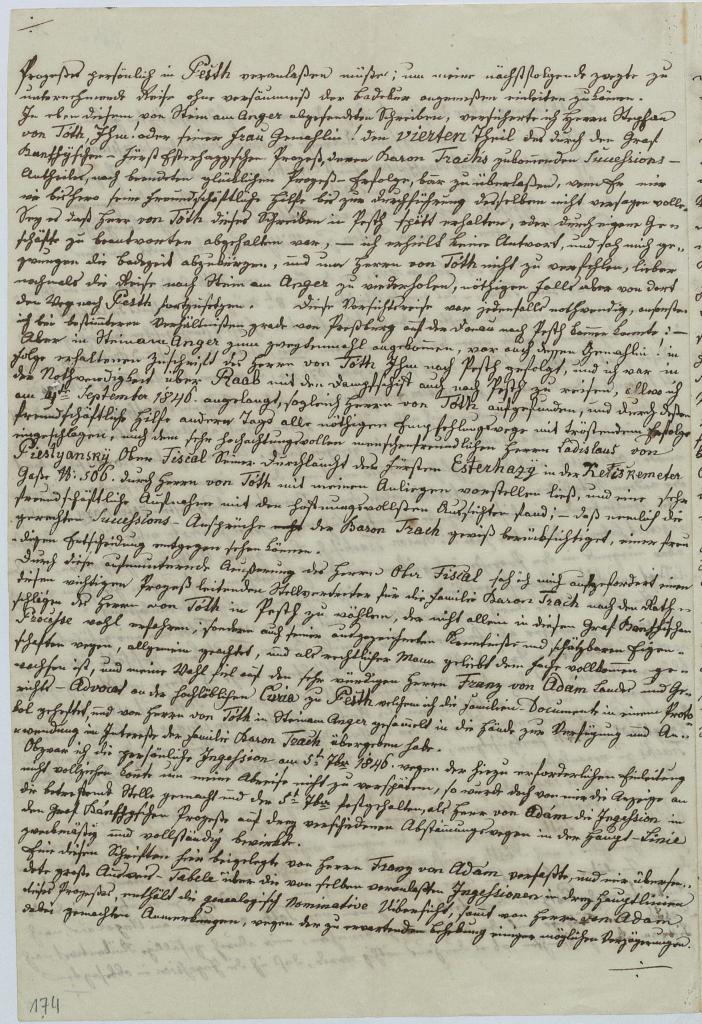 Prozeßes persönlich in Pesth veranlaßen müße; um meine nächstfolgende zweyte zu
unternehmende Reise ohne versäumniß der Badekur angemeßen einleiten zu könen.
In eben diesem von Stein am Anger abgesendten Schreiben, versicherte ich Herrn Stephan
von Tóth, Ihm! oder seiner Frau Gemahlin! den vierten Theil des durch den Graf
Banffyschen - Fürst Esterhazyschen Prozeß, deren Baron Trachs zukomenden Successions-
Antheiles, nach beendeten glücklichen Prozeß-Erfolge, bar zu überlaßen, wenn Er mir
wie bishero seine freundschäftliche Hilfe bis zur durchführung desselben nicht versagen wolle.
Sey es daß Herr von Tóth dieses Schreiben in Pesth spätt erhalten, oder durch eigene Ge-
schäfte zu beantworten abgehalten war, - ich erhielt keine Antwort, und sah mich ge-
zwungen die Badezeit abzukürzen, und um Herrn von Tóth nicht zu verfehlen, lieber
nochmals die Reise nach Stein am Anger zu wiederholen, nöthigen falls aber von dort
den Weg nach Pesth fortzusetzen. Diese Vorsichtsreise war jedenfalls nothwendig, ansonsten
ich bei bestimteren Verhältnißen grade von Preßburg auf der Donau nach Pesth komen konte: -
Aber in Stein am Anger zum zweytenmahl angekommen, war auch dessen Gemahlin! in
folge erhaltenen Zuschrift des Herrn von Tóth Ihm nach Pesth gefolgt, und ich war in
der Nothwendigkeit über Raab mit den Dampfschiff auch nach Pesth zu reisen, allwo ich
am September 1846. angelangt, sogleich Herrn von Tóth aufgefunden, und durch dessen
freundschäftliche Hilfe andern Tags alle nöthigen Empfehlungswege mit tröstendem Erfolge
eingeschlagen, auch dem sehr hochachtungsvollen menschenfreundlichen Herrn Ladislaus von
Piestyansky Ober Fiscal Seiner Durchlaucht des Fürsten Esterhazy in der Ketskemeter
Gaße N: 506. durch Herrn von Tóth mit meinen Anliegen vorstellen ließ, und eine sehr
freundschäftliche Aufnahme mit den hoffnungsvollsten Aussichten fand; - daß nemlich die
gerechten Successions-Ansprüche der Baron Trach gewiß berücksichtiget, einer freu
digen Entscheidung entgegen sehen könen.
Durch diese aufmunternde Äußerung des Herrn Ober Fiscal sah ich mich aufgefordert einen
diesen wichtigen Prozeß leitenden Stellvertretter für die Familie Baron Trach nach den Rath-
schlägen des Herrn von Tóth in Pesth zu wählen, der nicht allein in diesen Graf Bánffischen
Processe wohl erfahren; sondern auch seiner ausgezeichneten Kenntniße und schätzbaren Eigen-
schaften wegen, allgemein geachtet, und als rechtlicher Mann geliebt dem Fache vollkommen ge-
wachsen ist, und meine Wahl fiel auf den sehr würdigen Herrn Franz von Adam Landes und Ge-
richts-Advocat an der hochlöblichen Curia zu Pesth welchem ich die Familien Documente in einem Proto
kol geheftet, und von Herrn von Tóth in Stein am Anger gesamelt in die Hände zur Verfügung und An-
wendung im Interesse der Familie Baron Trach übergeben habe.
Obzwar ich die persönliche Ingession am 5t 7br 1846. wegen der hiezu erforderlichen Einleitung
nicht vollziehen konte um meine Abreise nicht zu verspäten, so wurde doch von mir die Anzeige an
die betreffende Stelle gemacht und der 5t 7br festgehalten, als Herr von Adám die Ingession in
den Graf Bánffyschen Prozeße auf drey verschiedenen Abstämungswegen in der Haupt-Linie
zweckmäßig und vollständig bewirkte.
Eine diesen Schriften hier beigelegte von Herrn Franz von Adam verfaßte, und mir übersen-
dete große Ausweis-Tabele über die von selben veranlaßten Ingessionen in drey Hauptlinien
dieses Prozeßes, enthält die genealogisch Nominative Übersicht, samt von Herrn von Adam
dabei gemachten Anmerkungen, wegen der zu erwartenden Behebung einiger möglichen Verzögerungen.
174